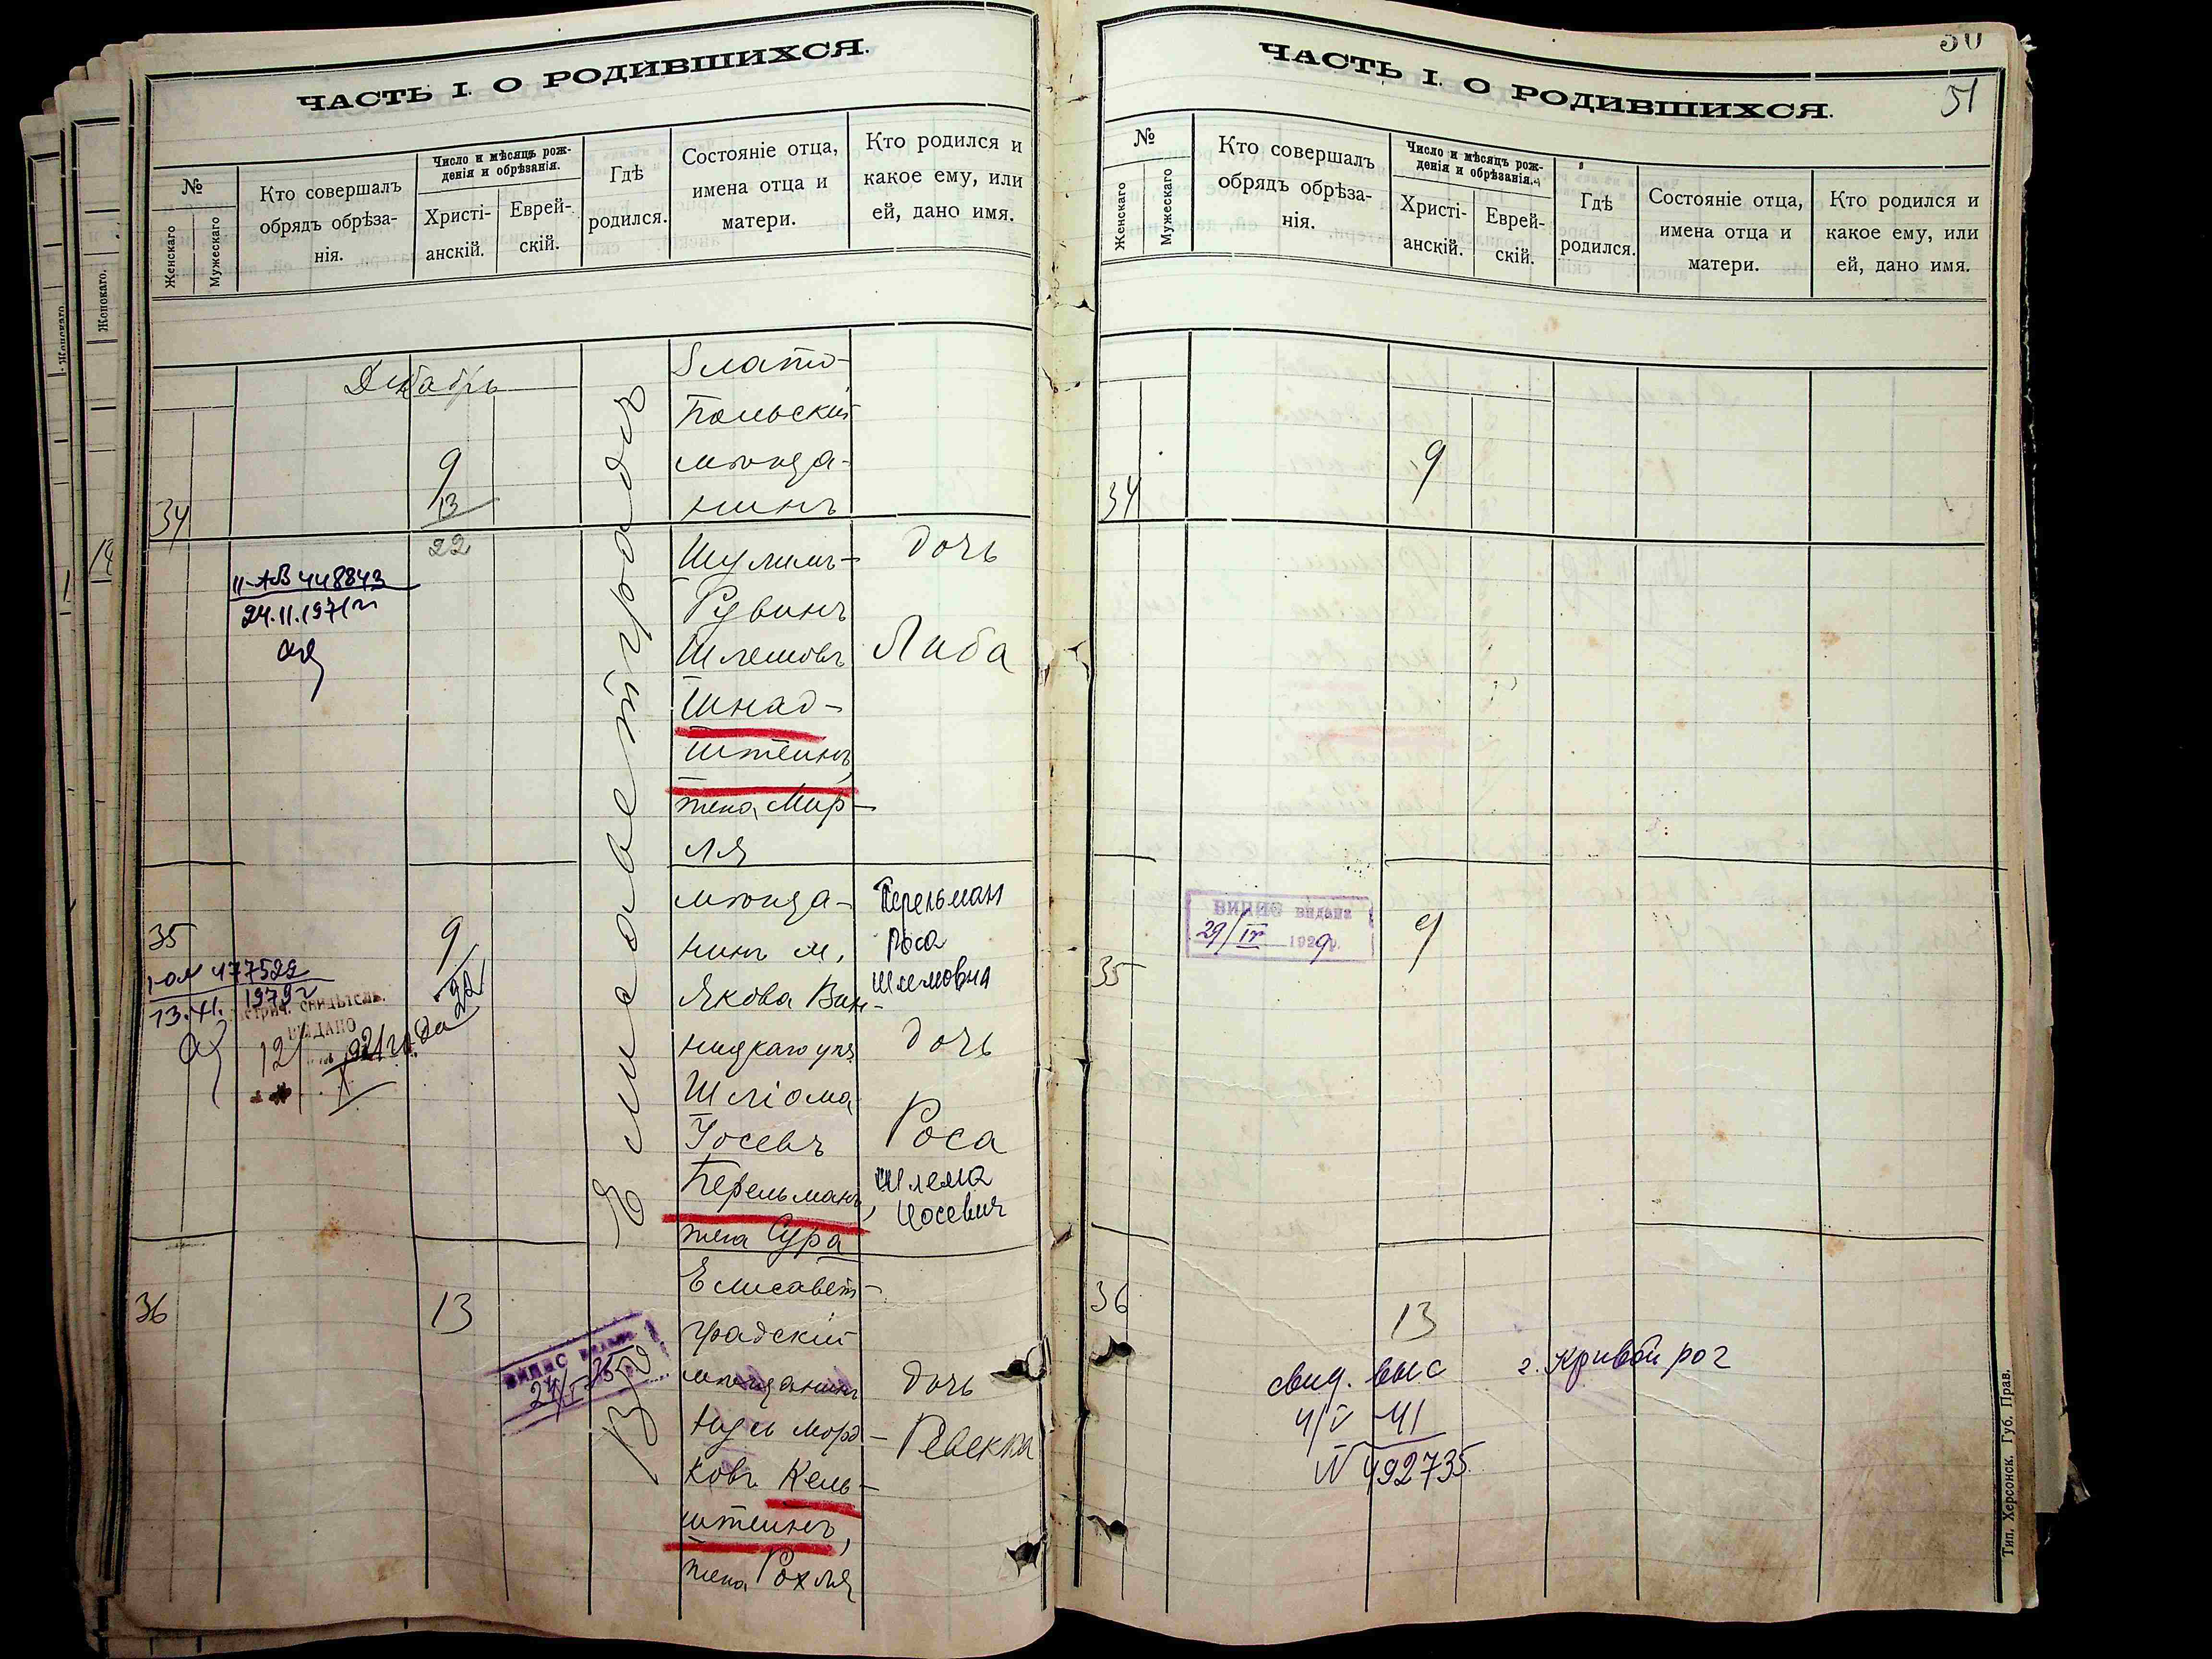 ЧАСТЬ I. О РОДИВШИХСЯ.
№
Женскаго
Мужескаго
Кто совершалъ
обрядъ обрѣза-
нія.
Число и мѣсяцъ рож-
денія и обрѣзанія.
Христі-
анскій.
Еврей-
скій.
Гдѣ
родился.
Состояніе отца,
имена отца и
матери.
Кто родился и
какое ему, или
ей, дано имя.
Декабрь
въ Елисаветградѣ
34
9
13
22
II-АВ 448843
24.11.1971 г
Злато-
польскій
мѣща-
нинъ
Шулимъ-
Рувинъ
Шлемовъ
Шнад-
штейнъ,
жена Мир-
ля
дочь
Либа
35
477522
13.XI. 1979 г
свидѣтель.
ВИДАНО
12/X 921 года
9
22
мѣща-
нинъ м.
Якова Вин-
ницкаго
Шліома
Іосевъ
Перельманъ,
жена Сура
Перельман
Роса
Шлемовна
дочь
Роса
Шлема
Иосевич
36
13
ВИПИС
Елисавет-
градскій
мѣщанинъ
Морд-
ковъ Кель-
штейнъ,
жена Рохля
дочь
Ревекка
ЧАСТЬ I. О РОДИВШИХСЯ.
50
51
№
Женскаго
Мужескаго
Кто совершалъ
обрядъ обрѣза-
нія.
Число и мѣсяцъ рож-
денія и обрѣзанія.
Христі-
анскій.
Еврей-
скій.
Гдѣ
родился.
Состояніе отца,
имена отца и
матери.
Кто родился и
какое ему, или
ей, дано имя.
34
9
35
ВИПИС видана
29/IV 1929 р.
9
36
13
свид. выс г. Кривой рог
4/V 41
N 492735
Тип. Херсонск. Губ. Прав.